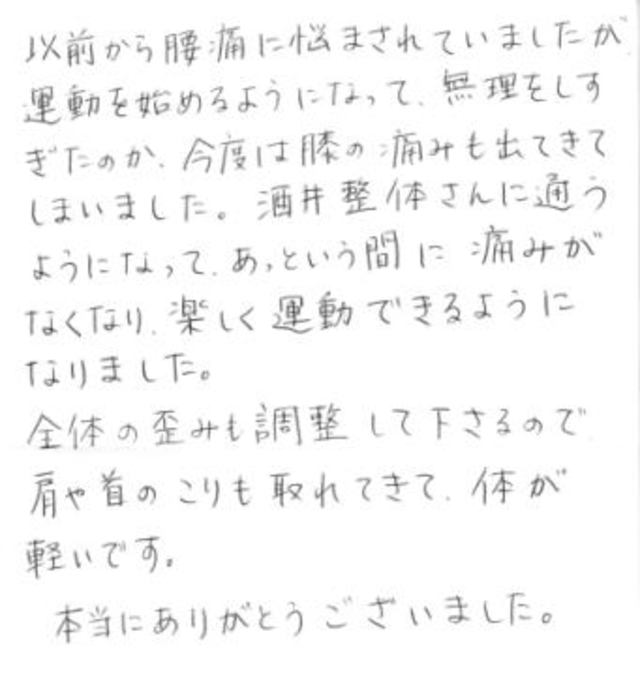 以前から腰痛に悩まされていましたが
運動を始めるようになって、無理をしす
ぎたのか、今度は膝の痛みも出てきて
しまいました。酒井整体さんに通う
ようになって、あっという間に痛みが
なくなり、楽しく運動できるように
なりました。
全体の歪みも調整して下さるので
肩や首のこりも取れてきて、体が
軽いです。
本当にありがとうございました。